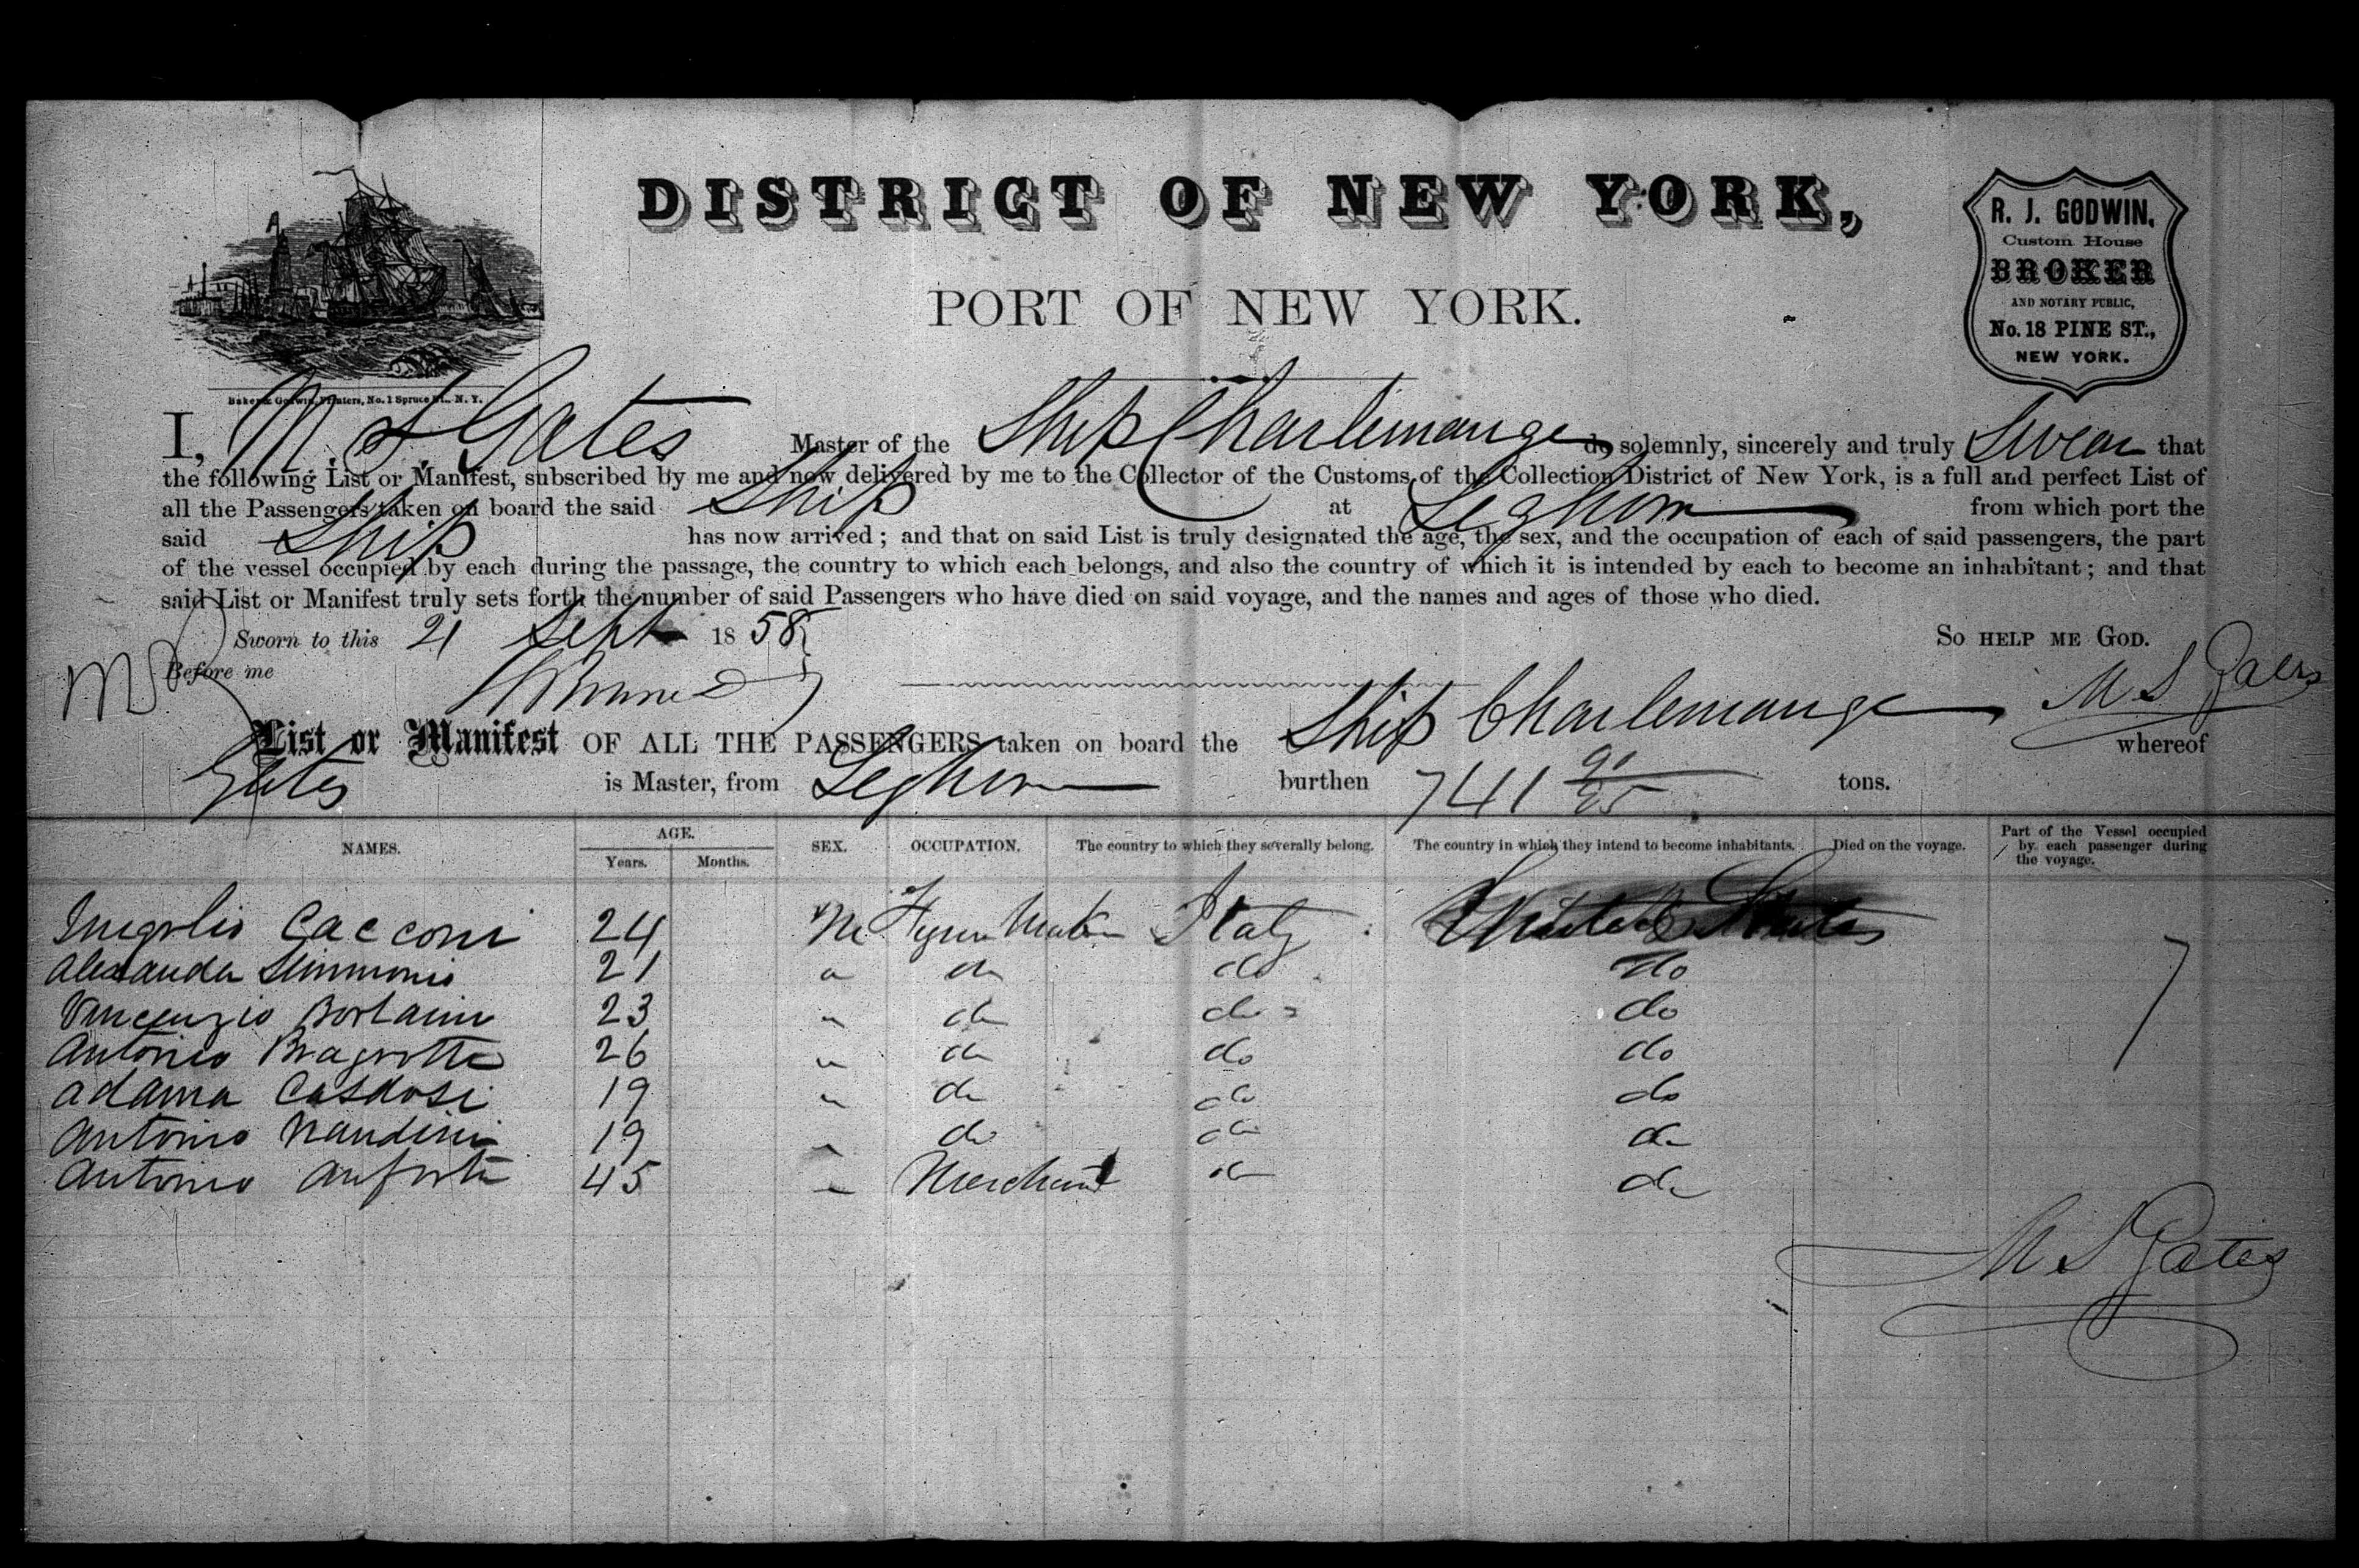 DISTRICT OF NEW YORK,
PORT OF NEW YORK.
R. J. GODWIN,
Custom House
BROKER
AND NOTARY PUBLIC,
No. 18 PINE ST.,
NEW YORK.
Baker & Godwin, Printers, No. 1 Spruce St., N. Y.
I, M. S. Gates Master of the Ship Charlemange do solemnly, sincerely and truly Swear that
the following List or Manifest, subscribed by me and now delivered by me to the Collector of the Customs of the Collection District of New York, is a full and perfect List of
all the Passengers taken on board the said Ship at Leghorn from which port the
said Ship has now arrived; and that on said List is truly designated the age, the sex, and the occupation of each of said passengers, the part
of the vessel occupied by each during the passage, the country to which each belongs, and also the country of which it is intended by each to become an inhabitant; and that
said List or Manifest truly sets forth the number of said Passengers who have died on said voyage, and the names and ages of those who died.
Sworn to this 21 Sept 1858 So help me God.
Before me M S Gates
List or Manifest OF ALL THE PASSENGERS taken on board the Ship Charlemange whereof
Gates is Master, from Leghorn burthen 741 91/95 tons.
NAMES. AGE. Years. Months. SEX. OCCUPATION. The country to which they severally belong. The country in which they intend to become inhabitants. Died on the voyage. Part of the Vessel occupied by each passenger during the voyage.
Cacconi 24 M Italy United States
Alexander 21 " do do do
Vincenzio 23 " do do do
Antonio 26 " do do do
Adama 19 " do do do
Antonio Nandini 19 " do do do
Antonio 45 " Merchant do do
7
M S Gates